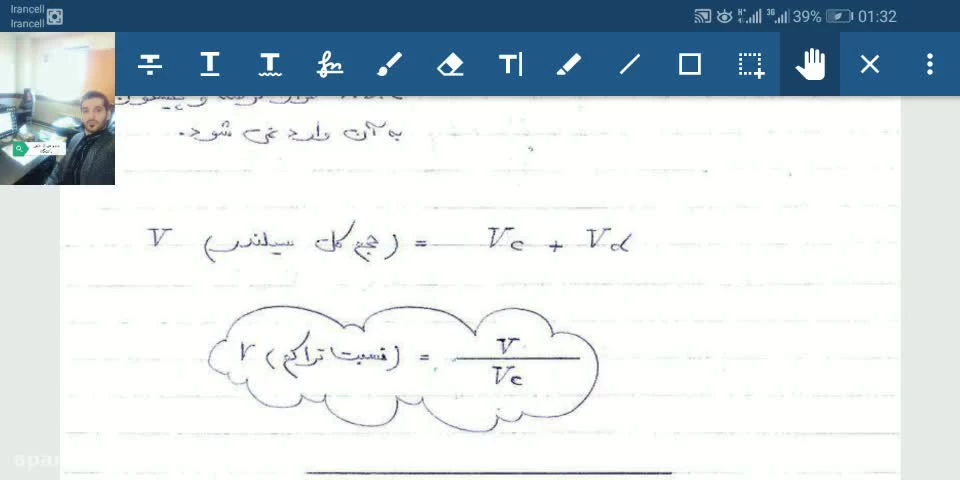 Irancell
Irancell
H+
3G
39%
01:32
به آن وارد نمی شود.
V (حجم کل سیلندر) = Vc + Vd
r (نسبت تراکم) = V / Vc